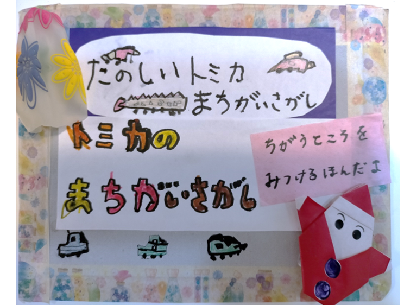 たのしいトミカ
まちがいさがし
トミカの
まちがいさがし
ちがうところを
みつけるほんだよ